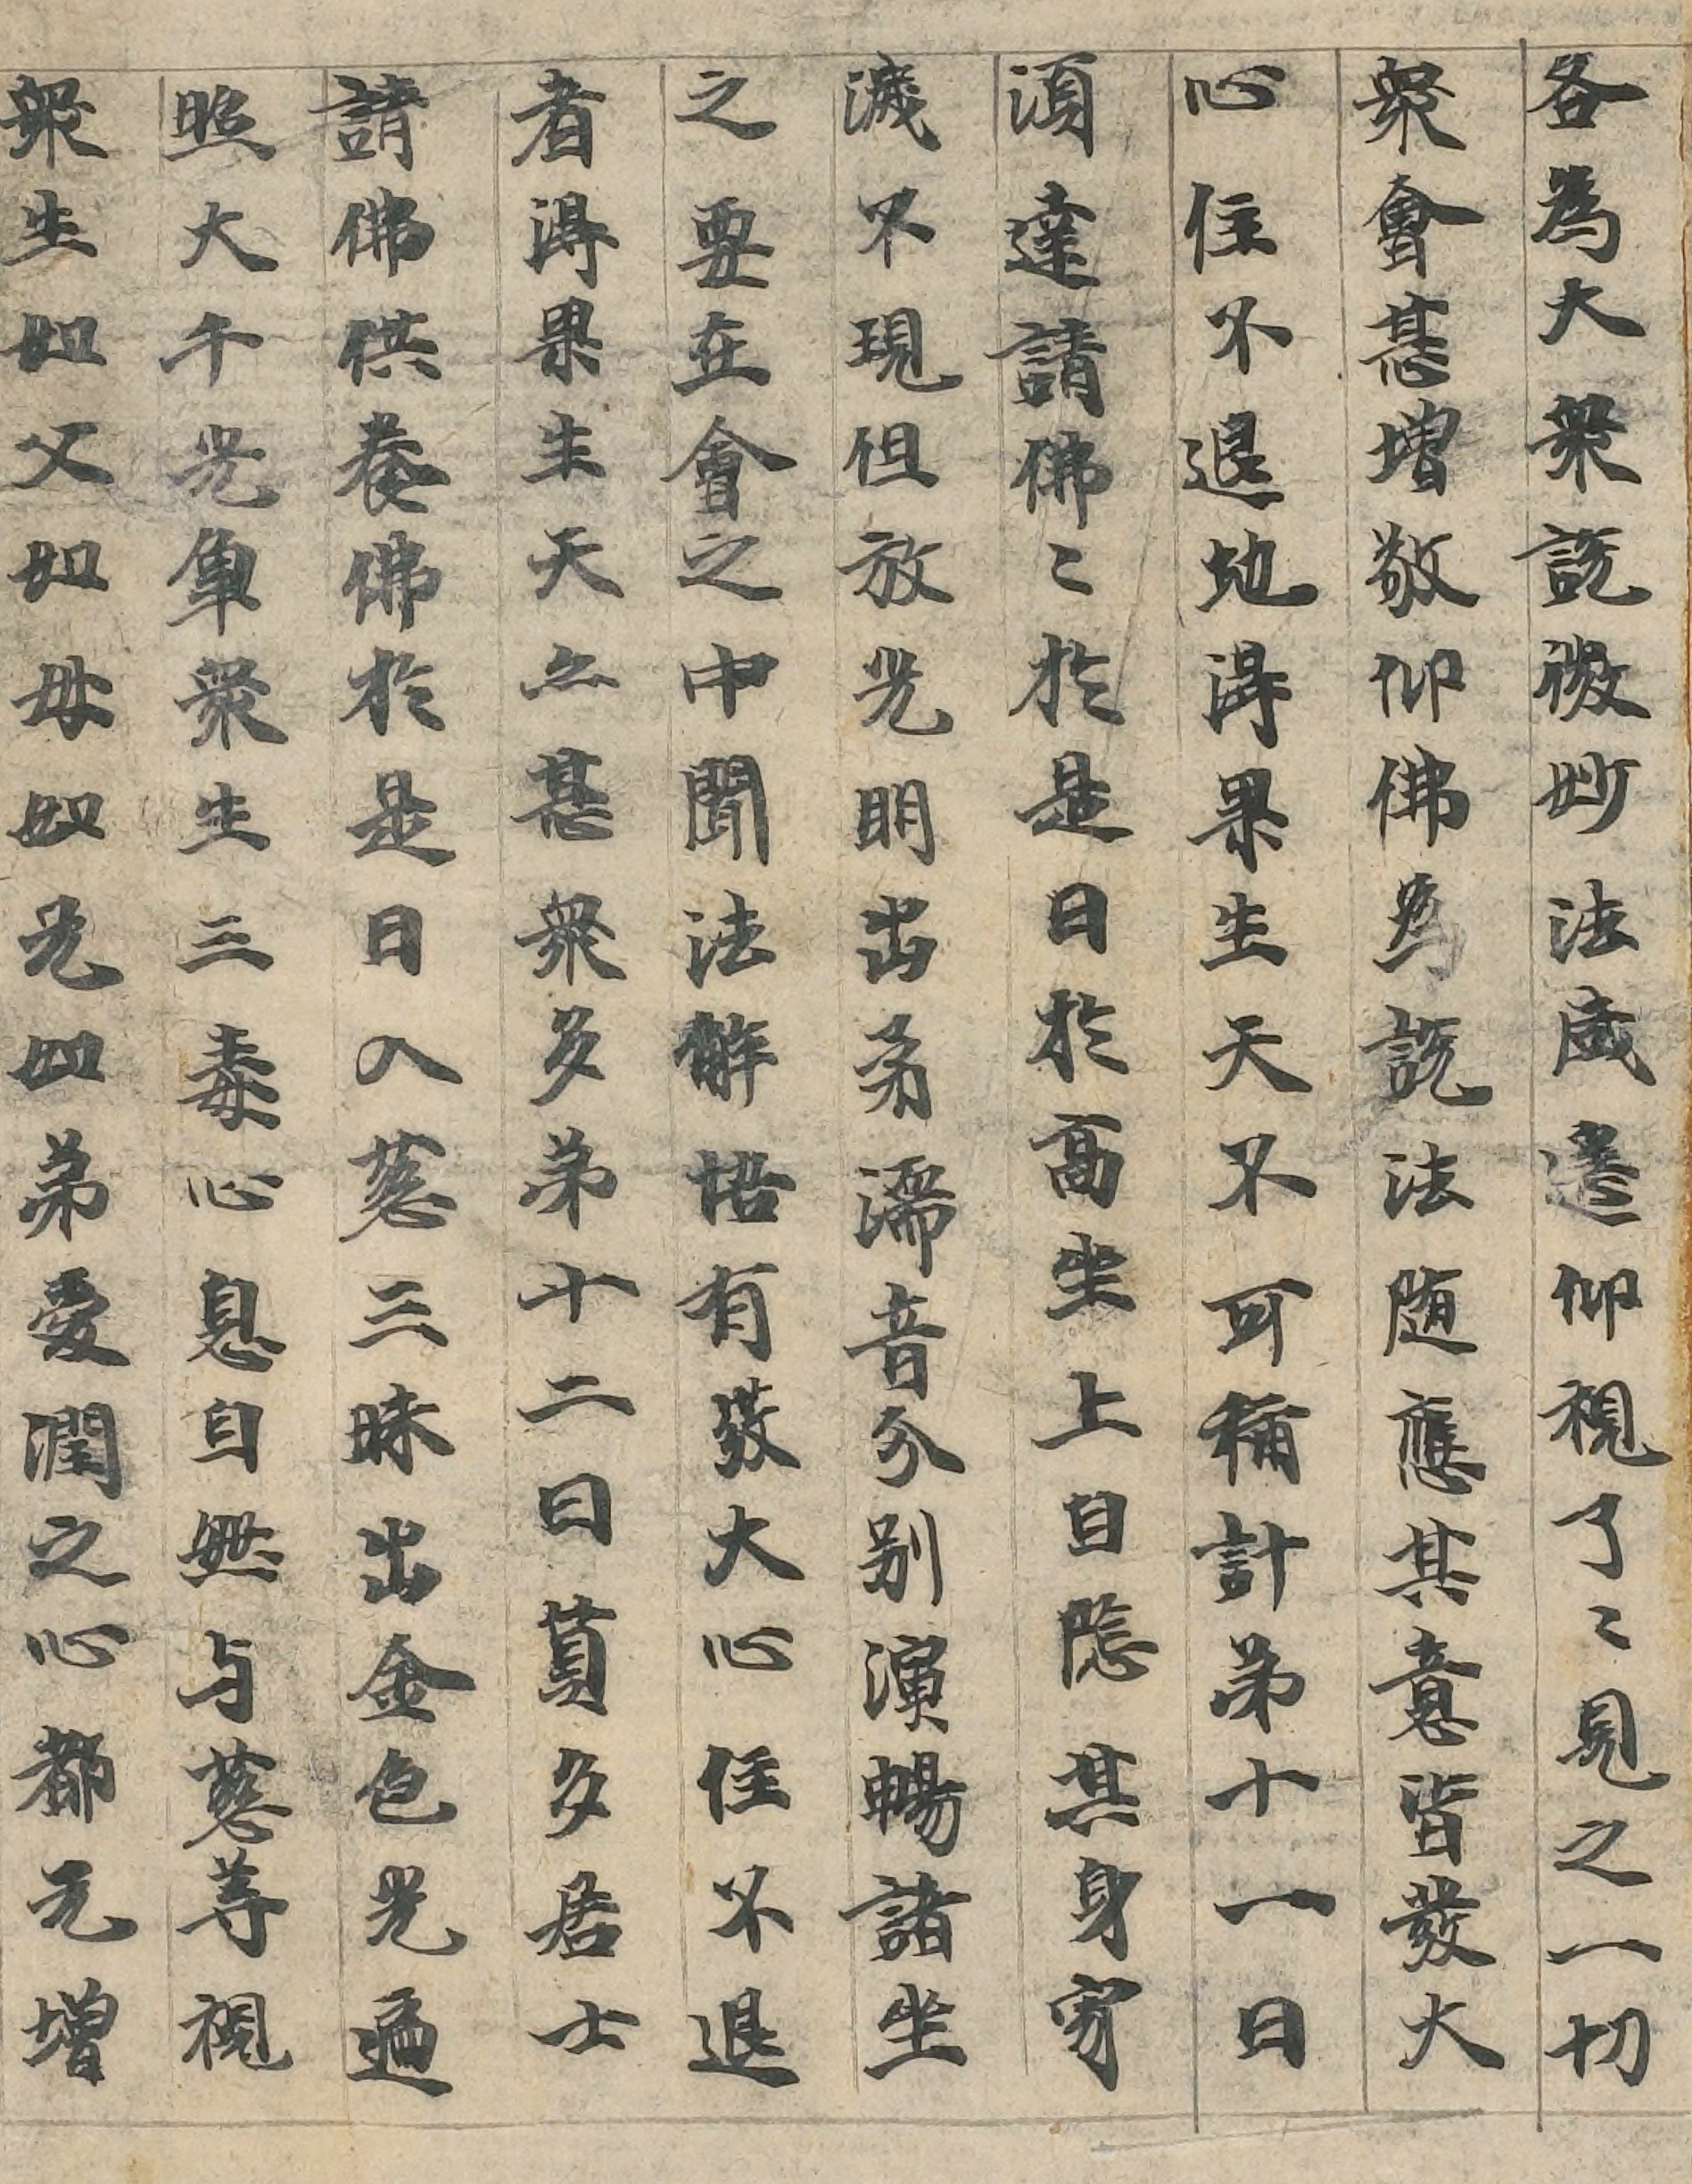 各為大衆說微妙法咸遥仰視了〻見之一切
衆會甚增敬仰佛為說法随應其意皆發大
心住不退地得果生天不可稱計弟十一日
湏達請佛〻於是日於髙坐上自隱其身寂
滅不現但放光明出柔濡音分别演暢諸坐
之要在會之中聞法解悟有發大心住不退
者得果生天亦甚衆多弟十二日質多居士
請佛供養佛於是日入慈三昧出金色光遍
照大千光觸衆生三毒心息自然与慈等視
衆生如父如母如兄如弟愛潤之心都无增